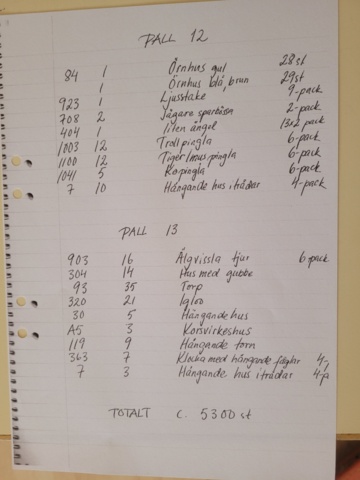 PALL 12
84 1 Örnhus gul 28st
1 Örnhus blå, brun 29st
923 1 Ljusstake 9-pack
708 2 Jägare sparbössa 2-pack
404 1 liten ängel 13x2 pack
1003 12 Trollpingla 6-pack
1100 12 Tiger/mus.pingla 6-pack
1041 5 Kopingla 6-pack
7 10 Hängande hus i trådar 4-pack
PALL 13
903 16 Älgvissla tjur 6-pack
304 14 Hus med gubbe
93 35 Torp
320 21 Igloo
30 5 Hängande hus
A5 3 Korsvirkeshus
119 9 Hängande torn
363 7 Klocka med hängande fåglar 4-p
7 3 Hängande hus i trådar 4-p
TOTALT C. 5300 st